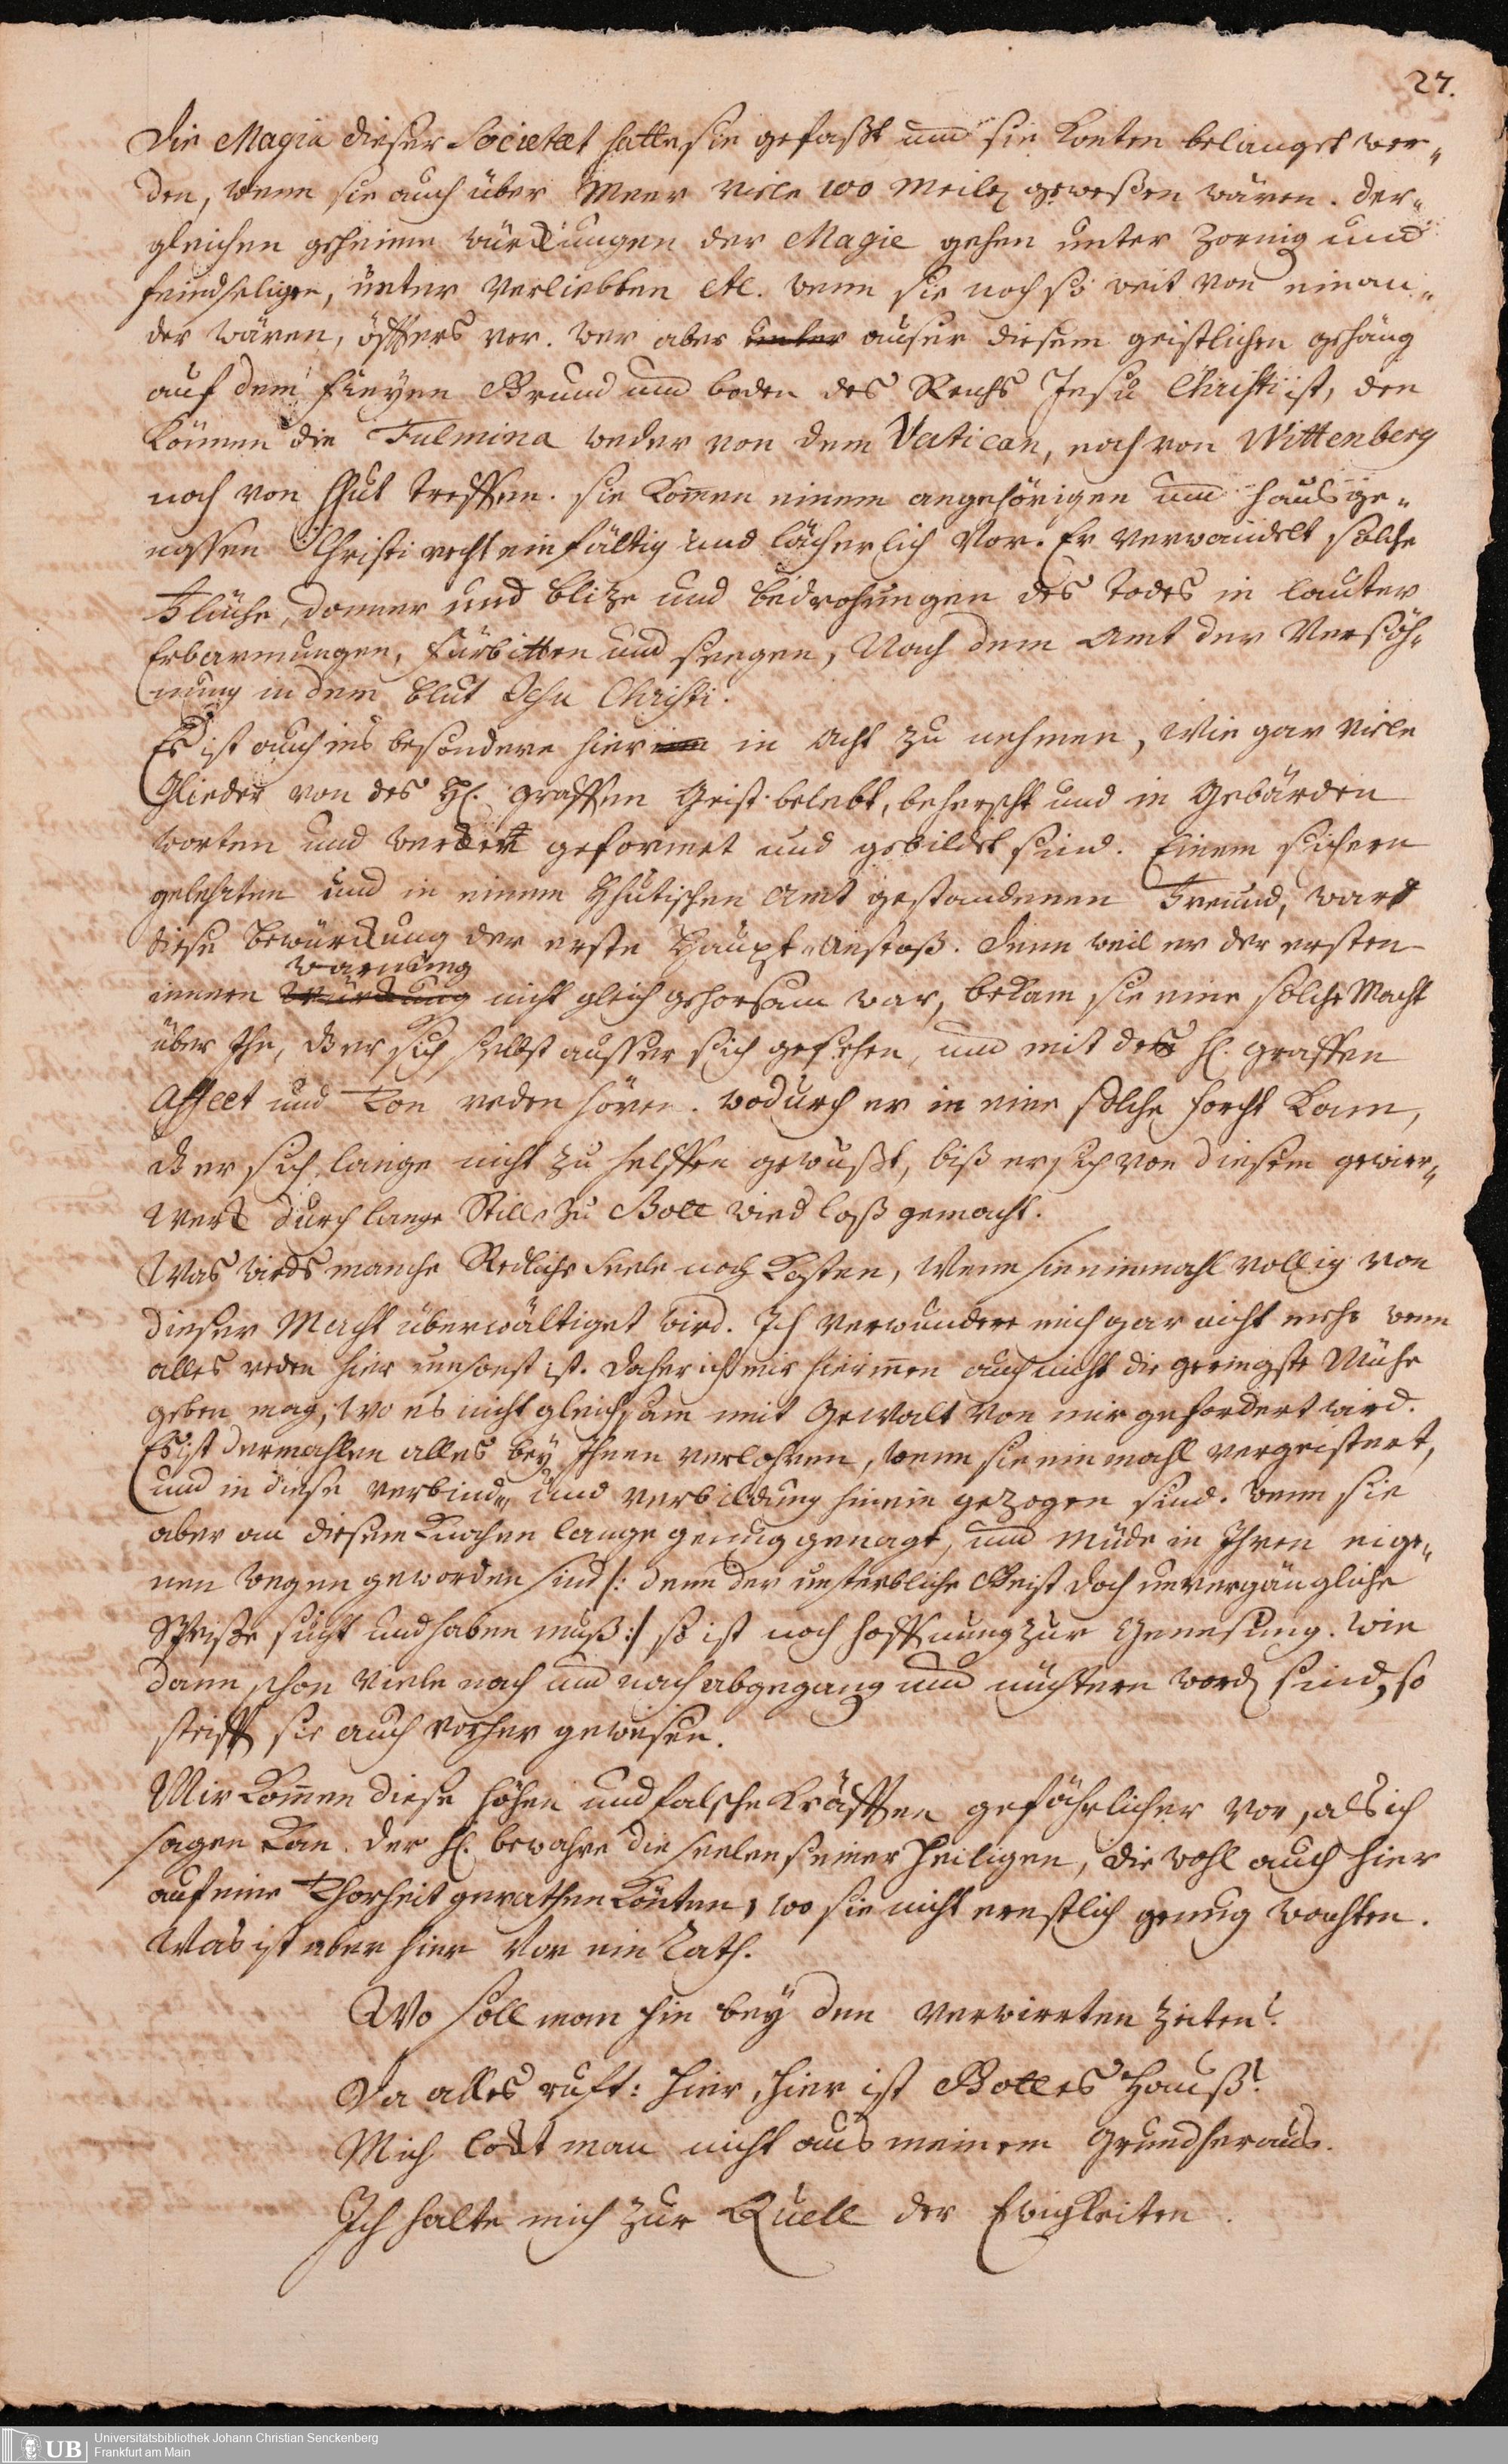 27.
Die Magia dieser Societæt hatte sie gefaßt und sie konten belanget wer„
den, wenn sie auch über Meer viele 100 Meilen geweßen wären. der„
gleichen geheime würckungen der Magie gehen unter Zornig und
feindseligen, unter Verliebten etc. wenn sie noch so weit von einan„
der wären, öffters vor. wer aber unter auser diesem geistlichen gehäng
auf dem freyen Grund und boden des Reichs Jesu Christi ist, den
können die Fulmina weder von dem Vatican, noch von Wittenberg
noch von HHut treffen. sie komen einem angehörigen und hausge„
nossen Christi recht einfältig und lächerlich vor. Er verwandelt solche
Flüche, donner und blitze und bedrohungen des todes in lauter
Erbarmungen, fürbitten und seegen, Nach dem Amt der Versöh„
nung in dem blut Jesu Christi.
Es ist auch ins besondere hier in acht zu nehmen, wie gar viele
Glieder von des H. graffen Geist belebt, beherscht und in Gebärden
worten und wercken geformet und gebildet sind. Einem sichern
gelehrten und in einem HHutischen Amt gestandenen Freund, war
diese bewürckung der erste Haupt-Anstoß. denn weil er der ersten
warnung
innern würckung nicht gleich gehorsam war, bekam sie eine solche Macht
über Ihn, dß er sich selbst ausser sich gesehen, und mit des H. graffen
Affect und Ton reden hören. wodurch er in eine solche forcht kam,
dß er sich lange nicht zu helffen gewußt, biß er sich von diesem gewirr„
werck durch lange Stille zu Gott wied loß gemacht.
Was wirds manche Redliche Seele noch kosten, wenn sie einmahl vollig von
dieser Macht überwältiget wird. Ich verwundere mich gar nicht mehr wenn
alles reden hier umsonst ist. Daher ich mir hierinnen auch nicht die geringste Mühe
geben mag, wo es nicht gleichsam mit Gewalt von mir gefordert wird.
Es ist dermahlen alles bey Ihnen verlohren, wenn sie einmahl vergeistert,
und in diese verbind„ und verbildung hinein gezogen sind. wenn sie
aber an diesem Knochen lange genug genagt, und müde in Ihren eige„
nen wegen geworden sind /: denn der unsterbliche Geist doch unvergängliche
Speiße sucht und haben muß :/ so ist noch hoffnung zur Genesung. wie
dann schon viele nach und nach abgegang und nüchtern word sind, so
steiff sie auch vorher gewesen.
Mir komen diese hohen und falsche Kräfften gefährlicher vor, als ich
sagen kan. der H. bewahre die seelen seiner Heiligen, die wohl auch hier
auf eine Thorheit gerathen könten, wo sie nicht ernstlich genug wachten.
Was ist aber hier vor ein Rath.
Wo soll man hin bey den verwirrten Zeiten?
Da alles rufft: hier, hier ist Gottes Hauß?
Mich lockt man nicht aus meinem Grund heraus.
Ich halte mich zur Quell der Ewigkeiten.
UB Universitätsbibliothek Johann Christian Senckenberg
Frankfurt am Main